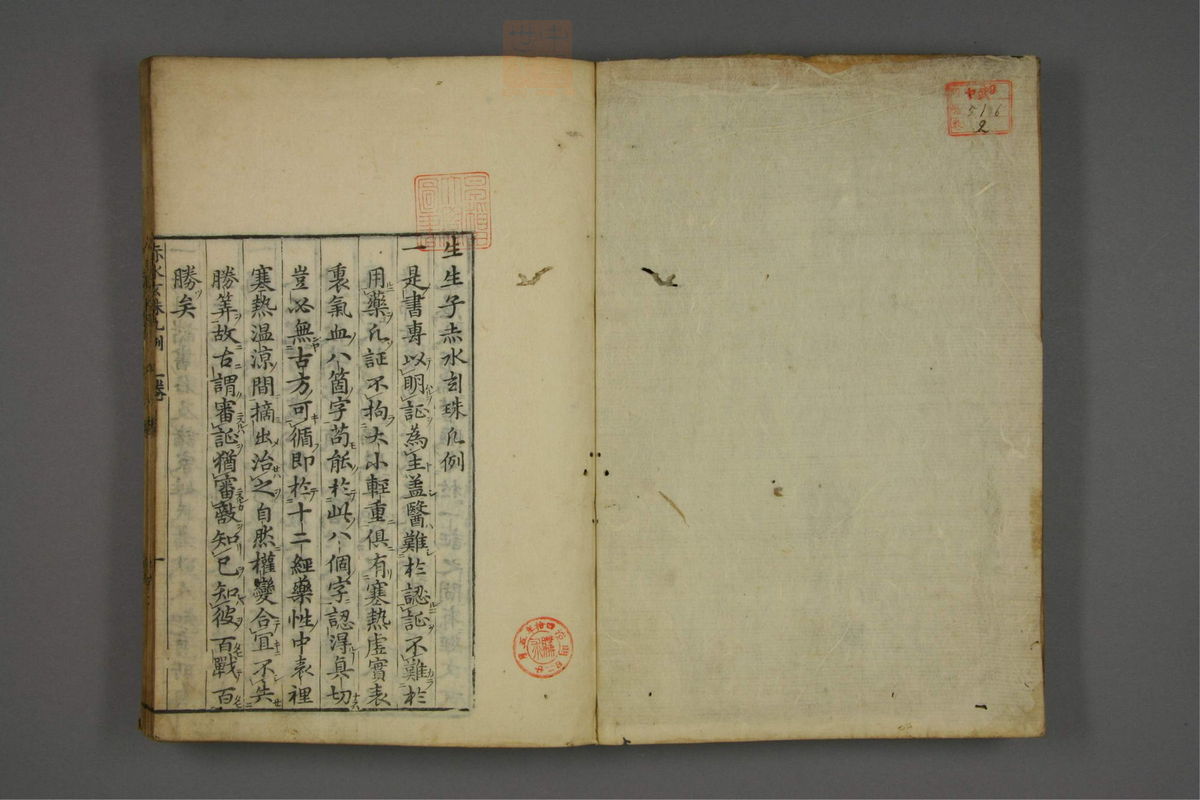 生生子赤水玄珠凡例
一是書專以明証為主盖醫難於認証不難於
用藥凡証不拘大小輕重俱有寒熱虛實表
裏氣血八箇字苟能於此八個字認得真切
豈必無古方可循即於十二經藥性中表裡
寒熱温凉間摘出治之自然權變合宜不失
勝筭故古謂審証猶審敵知已知彼百戰百
勝矣
赤水玄珠凡例
516
2